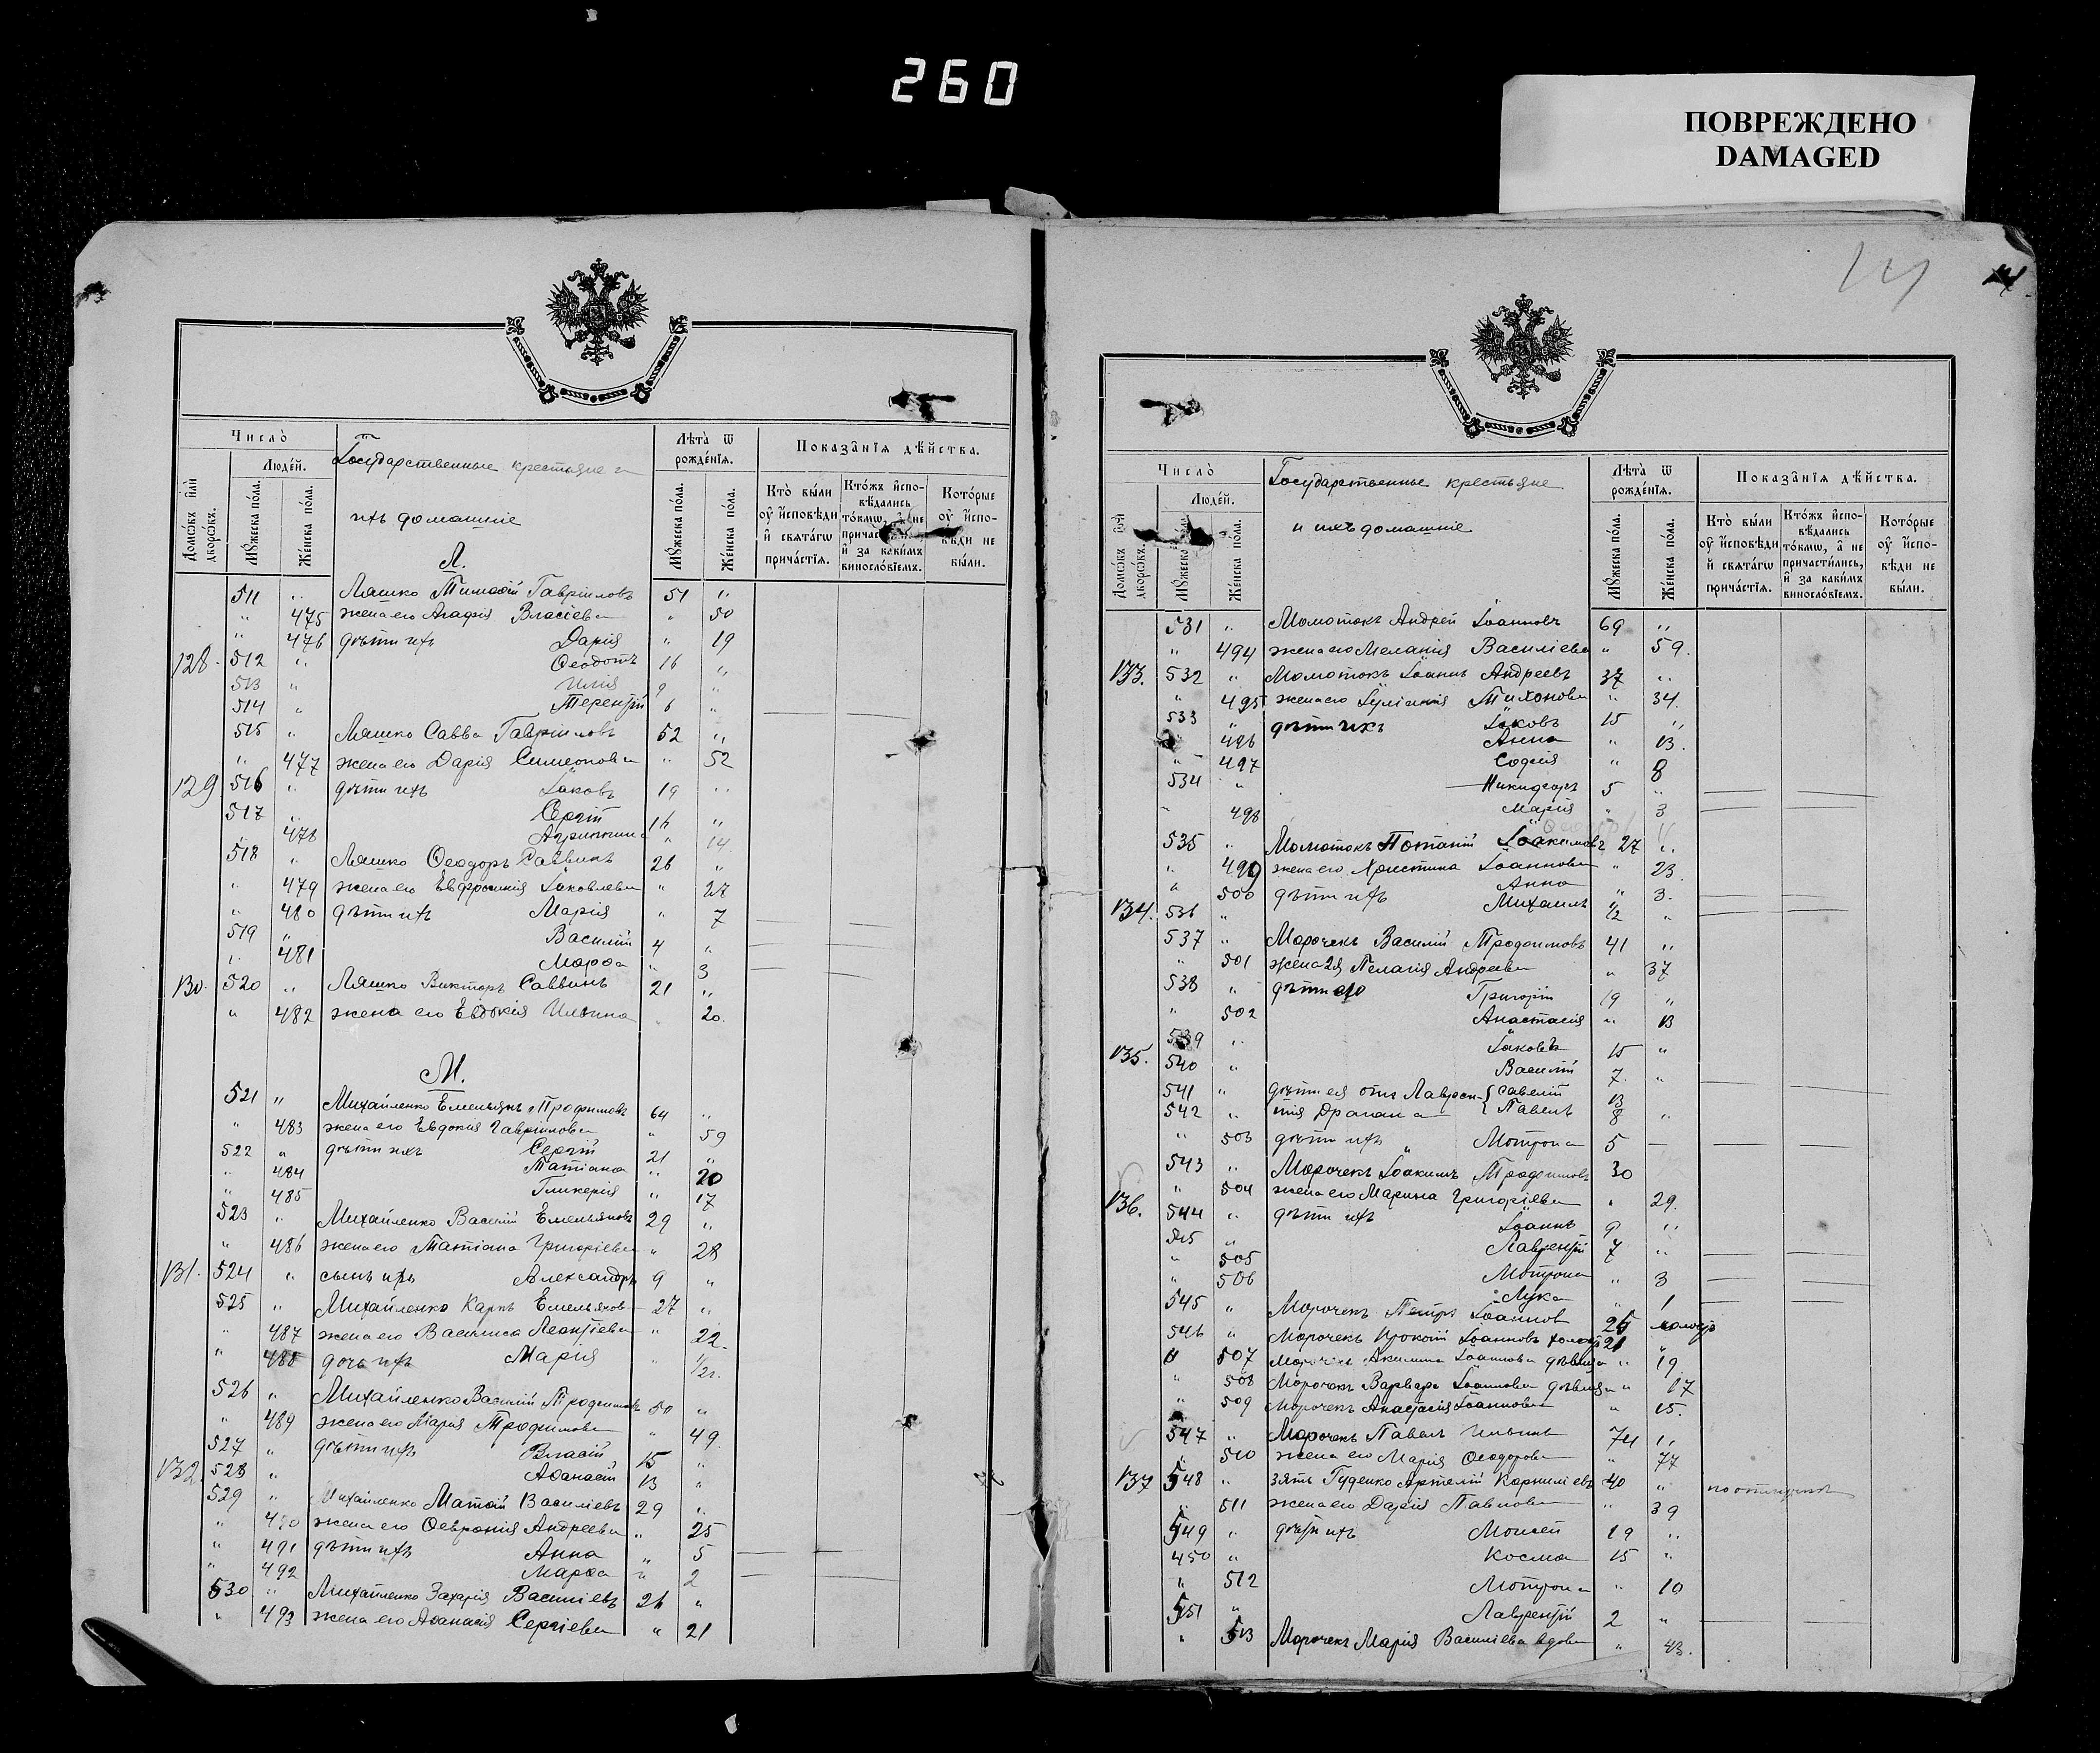 260
ПОВРЕЖДЕНО
DAMAGED
Число̀
Людей.
Домо́въ и҆лѝ дворо́въ.
Мꙋжеска по́ла.
Же́нска по́ла.
Государственные крестьяне и
ихъ домашніе
Лѣта̀ ѿ рожде́нїѧ.
Мꙋжеска по́ла.
Же́нска по́ла.
Показа̑нїѧ дѣ́йства.
Кто̀ бы́ли оу҆ и҆сповѣди и҆ свѧта́гѡ прича́стїѧ.
Кто́жъ и҆спо- вѣдались то́кмѡ, а҆ не причас и҆ за каки́мъ винослов́їемъ.
Кото́рые оу҆ и҆спо- вѣди не бы́ли.
Л.
511 " Ляшко Тимоѳій Гавріиловъ 51 "
" 475 жена его Агаѳія Власіева " 50
" 476 дѣти ихъ Дарія " 19
128. 512 " Ѳеодотъ 16 "
513 " Илія 9 "
514 " Терентій 6 "
515 " Ляшко Савва Гавріиловъ 52 "
" 477 жена его Дарія Симеонова " 52
129 516 " дѣти ихъ Іаковъ 19 "
517 " Сергій 16 "
" 478 Агриппина " 14
518 " Ляшко Ѳеодоръ Саввинъ 26 "
" 479 жена его Евфросинія Іаковлева " 27
" 480 дѣти ихъ Марія " 7
519 " Василій 4 "
" 481 Марѳа " 3
130. 520 " Ляшко Викторъ Саввинъ 21 "
" 482 жена его Евдокія Ильина " 20.
М.
521 " Михайленко Емельянъ Трофимовъ 64 "
" 483 жена его Евдокія Гавріилова " 59
522 " дѣти ихъ Сергій 21 "
" 484 Татіана " 20
" 485 Гликерія " 17
523 " Михайленко Василій Емельяновъ 29 "
" 486 жена его Татіана Григоріева " 28
131. 524 " сынъ ихъ Александръ 9 "
525 " Михайленко Карпъ Емельянов 27 "
" 487 жена его Василиса Леонтіева " 22
" 488 дочь ихъ Марія " 1/2 г.
526 " Михайленко Василій Трофимовъ 50 "
" 489 жена его Марія Трофимова " 49
527 " дѣти ихъ Власій 15 "
132. 528 " Аѳанасій 13 "
529 " Михайленко Матѳій Василіевъ 29 "
" 490 жена его Ѳевронія Андреева " 25
" 491 дѣти ихъ Анна " 5
" 492 Марѳа " 2
530 " Михайленко Захарія Василіевъ 26 "
" 493 жена его Аѳанасія Сергіева " 21
14
Число̀
Людей.
дворо́въ.
Мꙋжеска
Же́нска по́ла.
Государственные крестьяне
и ихъ домашніе
Лѣта̀ ѿ рожде́нїѧ.
Мꙋжеска по́ла.
Же́нска по́ла.
Показа̑нїѧ дѣ́йства.
Кто̀ бы́ли оу҆ и҆сповѣди и҆ свѧта́гѡ прича́стїѧ.
Кто́жъ и҆спо- вѣдались то́кмѡ, а҆ не причасти́лись, и҆ за каки́мъ винослов́їемъ.
Кото́рые оу҆ и҆спо- вѣди не бы́ли.
531 " Момотокъ Андрей Іоанновъ 69 "
" 494 жена его Меланія Василіева " 59.
133. 532 " Момотокъ Іоаннъ Андреевъ 37 "
" 495 жена его Іуліанія Тихонова " 34.
533 " дѣти ихъ Іаковъ 15 "
" 496 Анна " 13.
" 497 Софія " 8
534 " Никифоръ 5 "
" 498 Марія " 3
535 " Момотокъ Потапій Іоакимовъ 27 "
" 499 жена его Христина Іоаннова " 23.
" 500 дѣти ихъ Анна " 3.
134. 536 " Михаилъ 1/2 "
537 " Морочекъ Василій Трофимовъ 41 "
" 501 жена 2я Пелагія Андреева " 37
538 " дѣти его Григорій 19 "
" 502 Анастасія " 13
135. 539 " Іаковъ 15 "
540 " Василій 7 "
541 " дѣти ея отъ Лаврен- { Савелій 13
542 " тія Драпана { Павелъ 8 "
" 503 дѣти ихъ Мотрона 5
543 " Морочекъ Іоакимъ Трофимовъ 30
" 504 жена его Марина Григоріева " 29.
136. 544 " дѣти ихъ Іоаннъ 9 "
545 " Лаврентій 7 "
" 505
" 506 Мотрона " 3
545 " Лука " 1
Морочекъ Петръ Іоаннов 25 холостъ
546 " Морочекъ Прокопій Іоанновъ холост 21
" 507 Морочек Акилина Іоаннова дѣвица " 19
" 508 Морочекъ Варвара Іоаннова дѣвица " 17
" 509 Морочекъ Анастасія Іоаннова " 15.
547 " Морочекъ Павелъ Ильинъ 74 "
" 510 жена его Марія Ѳеодорова " 77
137 548 " зять Гуденко Артемій Корниліевъ 40 "
" 511 жена его Дарія Павлова " 39
549 " дѣти ихъ Моисей 19 "
450 " Косма 15 "
" 512 Мотрона " 10
551 " Лаврентій 2 "
" 513 Морочекъ Марія Василіева вдова " 43.